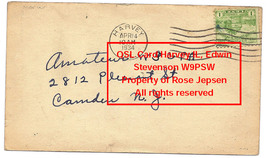 HARVEY
APR 14
10 AM
1934
QSL Card Harvey IL, Edwin
Stevenson W9PSW
Property of Rose Jepsen
All rights reserved
Amateur
2812 Pleasant St
Camden N. J.